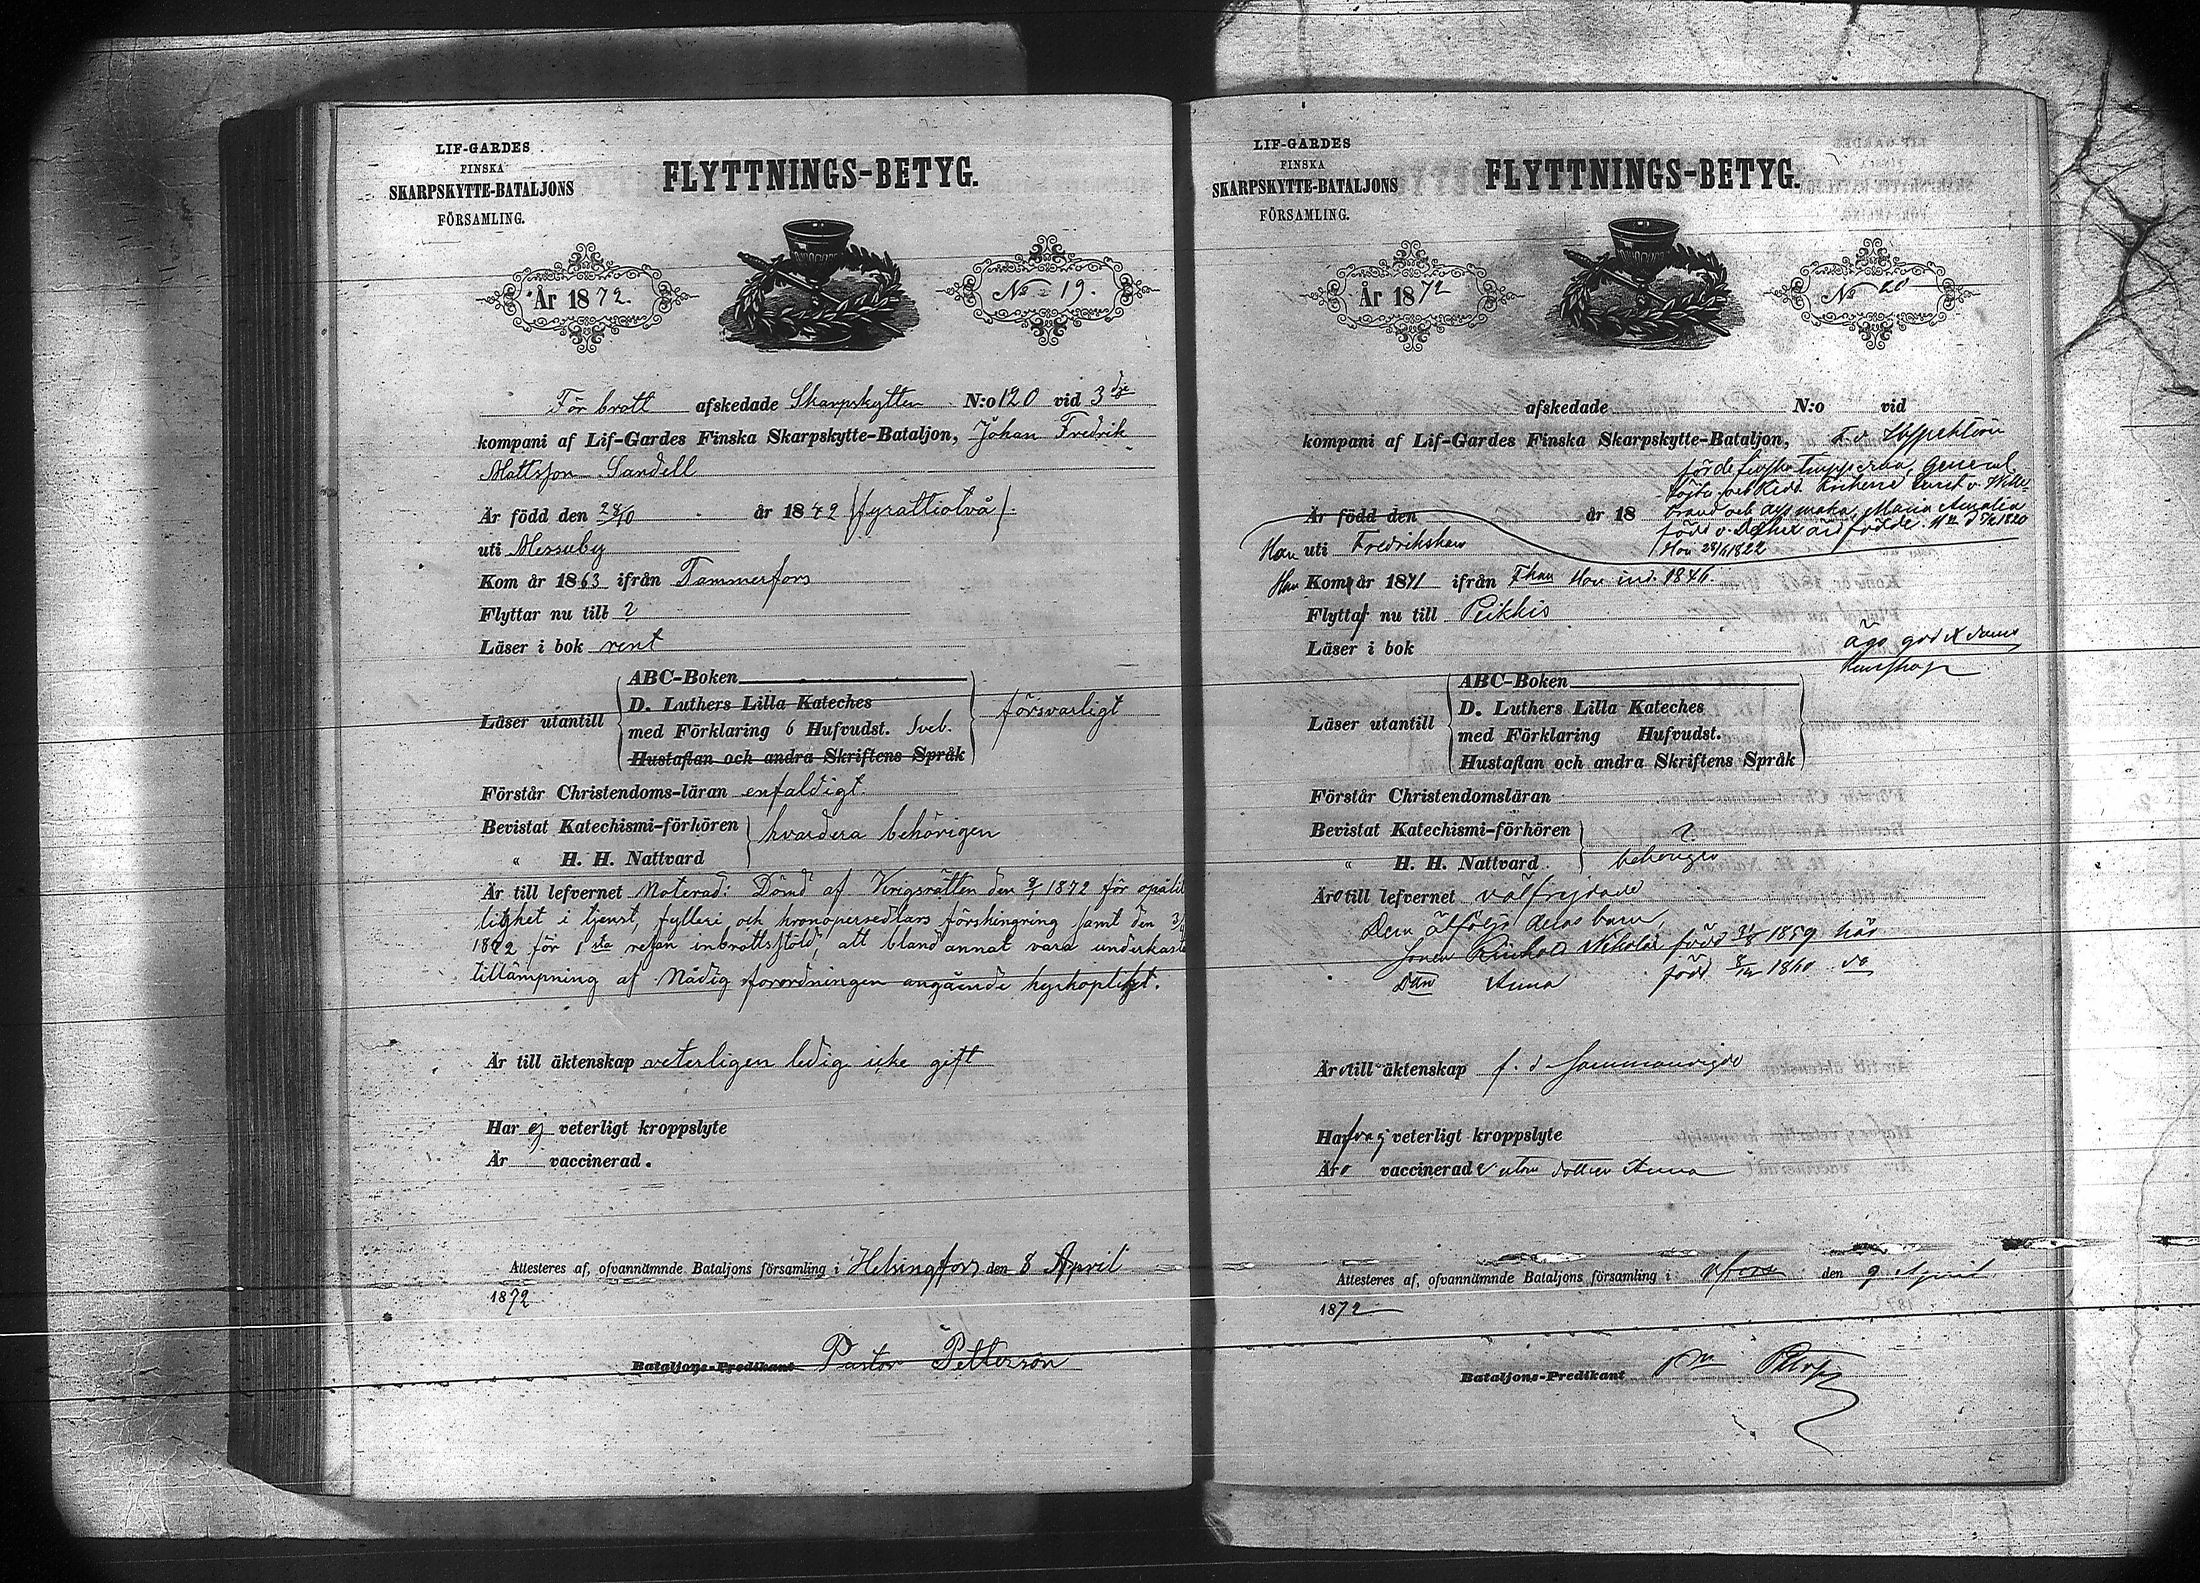 LIF-GARDES
FINSKA
SKARPSKYTTE-BATALJONS
FÖRSAMLING.
FLYTTNINGS-BETYG.
År 1872.
No 19.
För brott afskedade Skarpskytten N:o 120 vid 3dje
kompani af Lif-Gardes Finska Skarpskytte-Bataljon, Johan Fredrik
Mattsson Sandell
Är född den 28/10 år 1842 (fyratiotvå).
uti Messuby
Kom år 1863 ifrån Tammerfors
Flyttar nu till ?
Läser i bok rent
Läser utantill
ABC-Boken
D. Luthers Lilla Kateches
med Förklaring 6 Hufvudst. Sveb.
Hustaflan och andra Skriftens Språk
försvarligt
Förstår Christendoms-läran enfaldigt.
Bevistat Katechismi-förhören
" H. H. Nattvard
hvardera behörigen
Är till lefvernet Noterad: Dömd af Krigsrätten den 1872 för opålit
lighet i tjenst, fylleri och kronopersedlars förskingring samt den
1872 för 1sta resan inbrottsstöld, att bland annat vara underkastad
tillämpning af Nådig förordningen angående
Är till äktenskap veterligen ledig icke gift
Har ej veterligt kroppslyte
Är vaccinerad.
Attesteres af, ofvannämnde Bataljons församling i Helsingfors den 8 April
1872
Bataljons-Predikant Pastor Petterson
LIF-GARDES
FINSKA
SKARPSKYTTE-BATALJONS
FÖRSAMLING.
FLYTTNINGS-BETYG.
År 1872
No 20
afskedade N:o vid
kompani af Lif-Gardes Finska Skarpskytte-Bataljon, F. d. Inspektören
för de finska trupperna, General
och Ridd. Friherre
brand och dess maka, Maria Amalia
född v. födde
Hon 1822
Är född den år 18
Han uti Fredrikshamn
Han Kom år 1841 ifrån Fhamn Hon ind. 1846.
Flytta nu till Peikkis
Läser i bok
äga god
kunskap
Läser utantill
ABC-Boken
D. Luthers Lilla Kateches
med Förklaring Hufvudst.
Hustaflan och andra Skriftens Språk
Förstår Christendomsläran
Bevistat Katechismi-förhören
" H. H. Nattvard
?
behörigen
Äro till lefvernet välfrejdade
Dem åtfölja deras barn,
Sonen Reinhold Nikolai född 1859 här
Dttr Anna född 8/12 1860 do
Äro till äktenskap f. d. Sammanvigde
Hafva ej veterligt kroppslyte
Äro vaccinerade utom dotter Anna
Attesteres af, ofvannämnde Bataljons församling i Hfors den 9 April
1872
Bataljons-Predikant